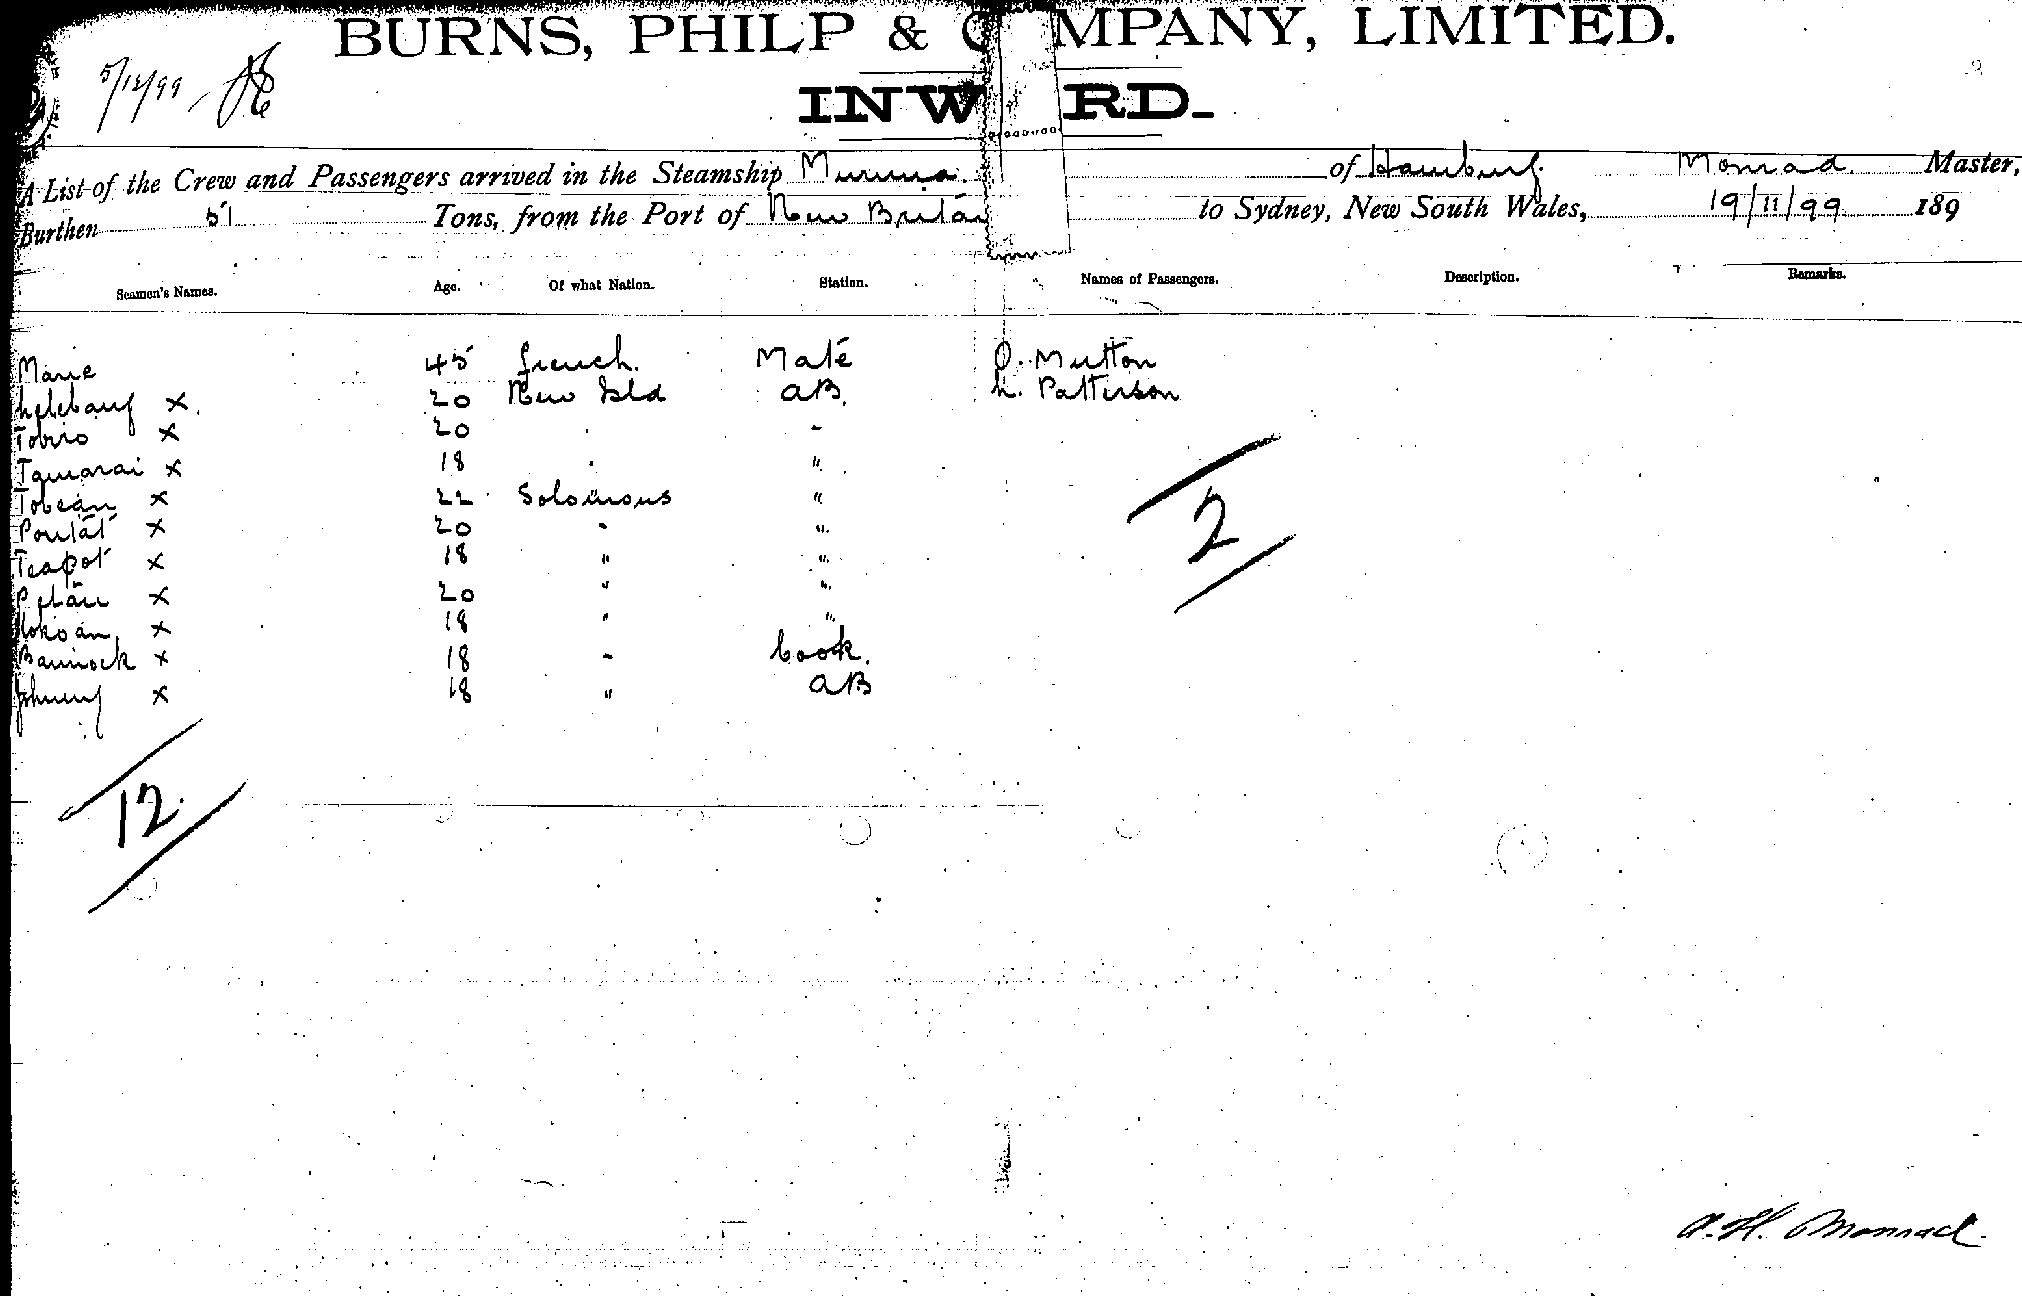 BURNS, PHILP & C MPANY, LIMITED.
5/12/99
INW RD.
A List of the Crew and Passengers arrived in the Steamship of Hamburg. Monrad. Master,
Burthen 51 Tons, from the Port of New Britain to Sydney, New South Wales, 19/11/99 189
Seamen's Names. Age. Of what Nation. Station. Names of Passengers. Description. Remarks.
Marie 45 French. Mate O. Mutton
x 20 New Isld AB. L. Patterson
Tobiro x 20 " "
Tamarai x 18 " "
Tobean x 22 Solomons "
Poutat x 20 " "
Teapot x 18 " "
Pelau x 20 " "
Kokoan x 18 " "
Bannock x 18 " Cook.
Johnny x 18 " AB
2
12
A. H. Monrad.